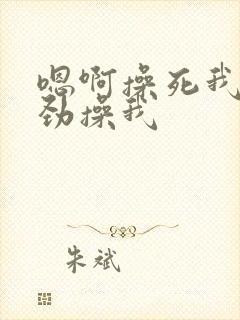 嗯啊操死我
劲操我
朱斌